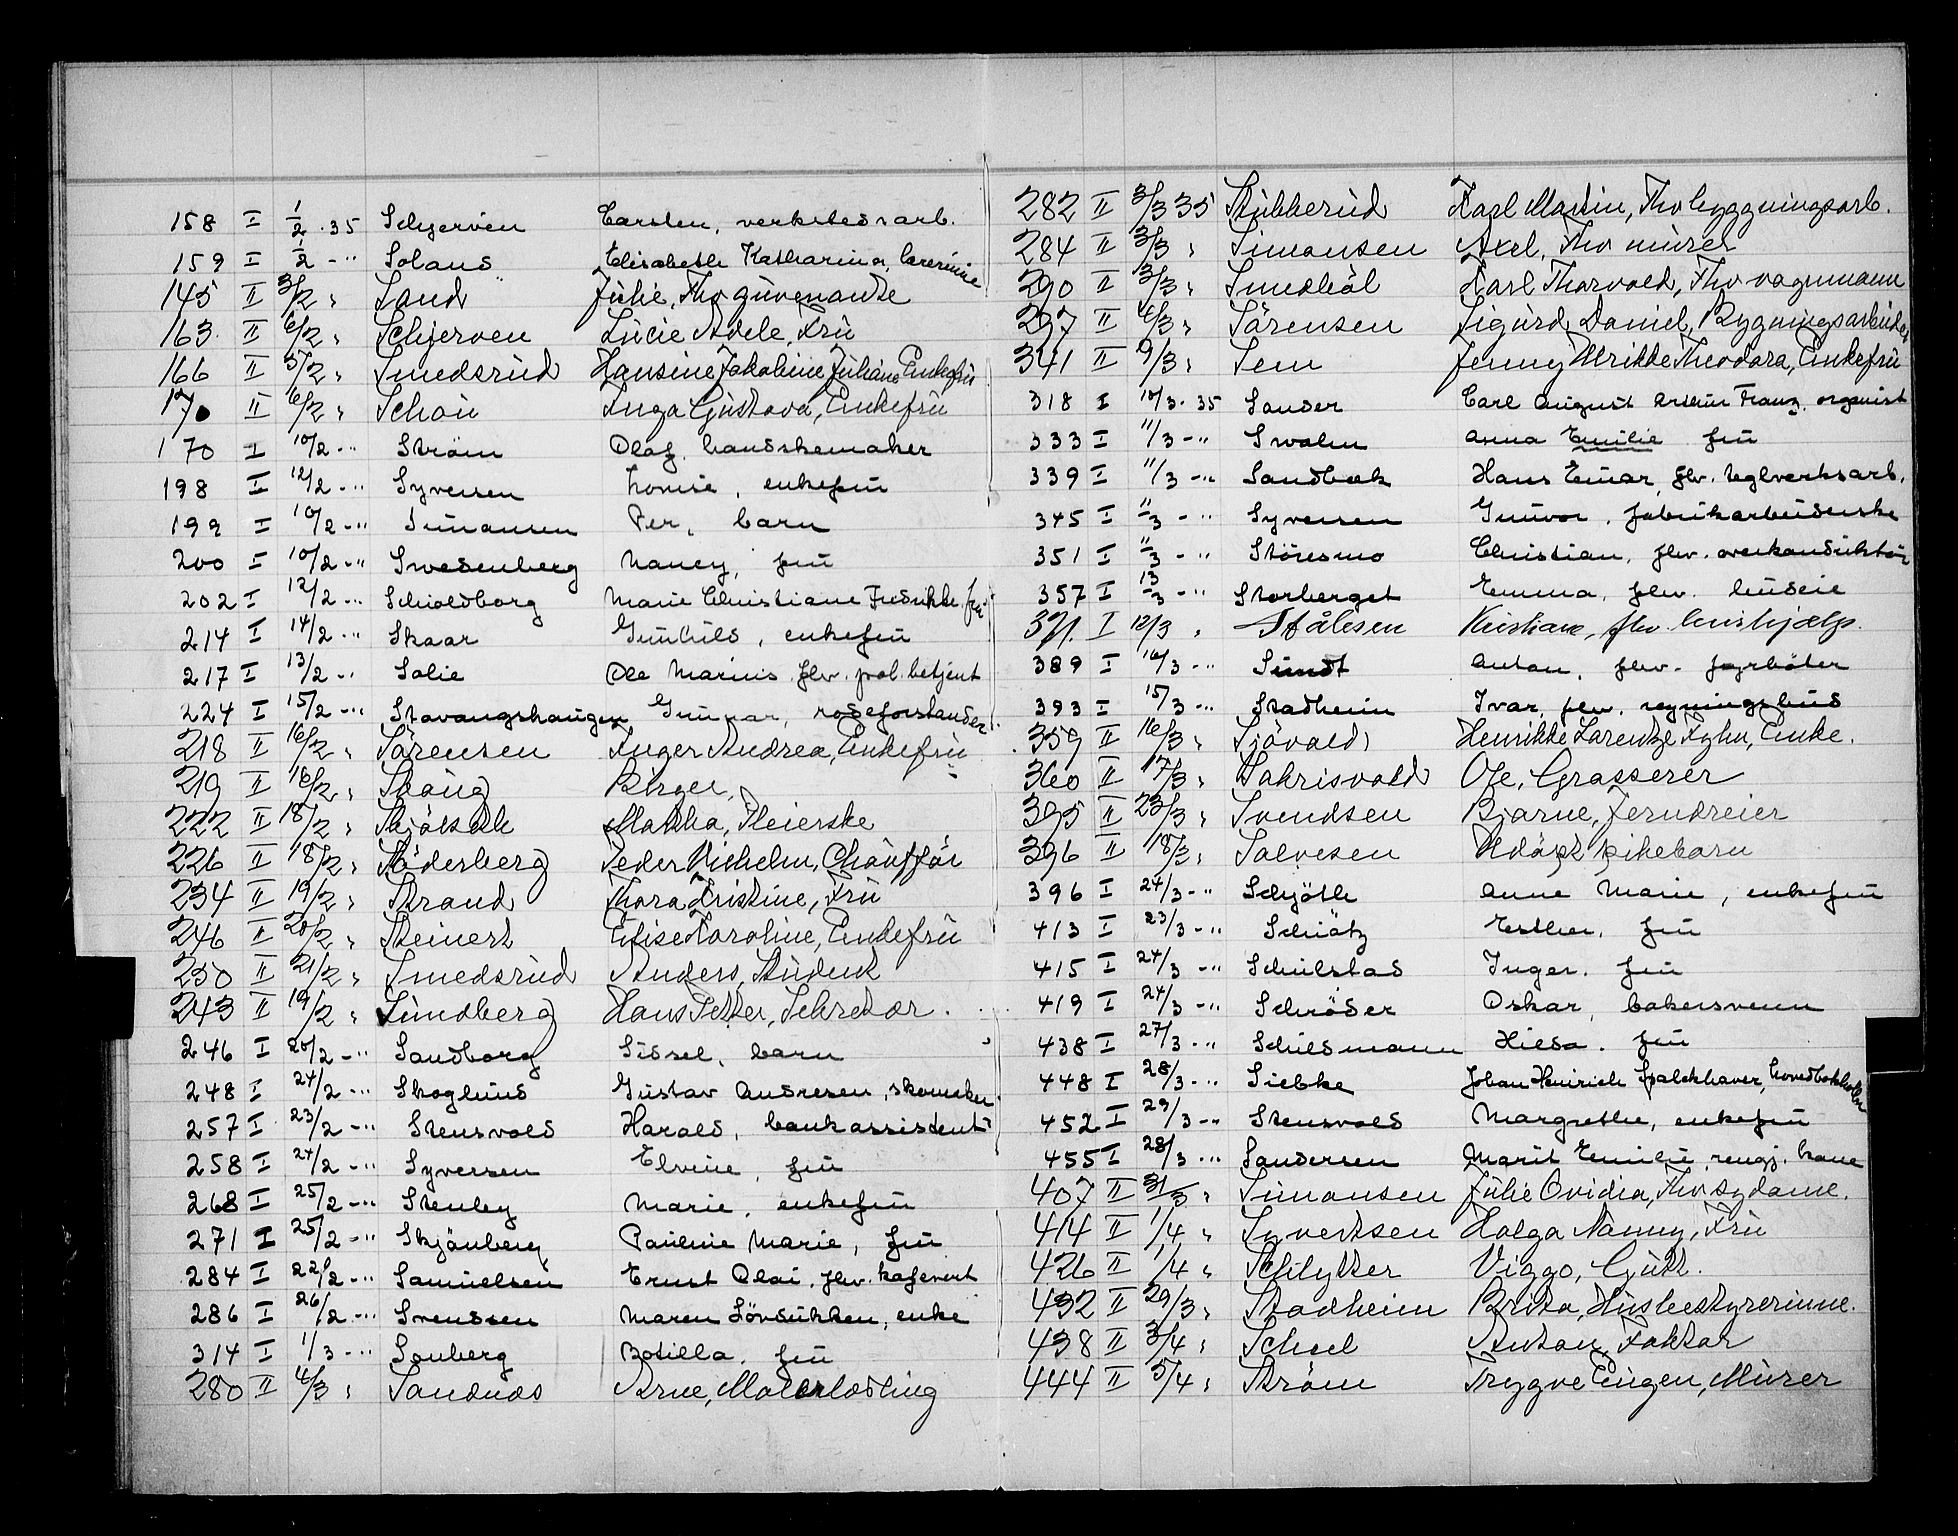 158 I 1/2 .35 Schjerven Carsten, verkstedsarb.
159 I 1/2 -" Solaus Elisabeth Katharina, lærerinne
145 II 3/2 " Sand Julie, Fhv guvernante
163 II 6/2 " Schjerven Lucie Adele, Fru
166 II 5/2 " Smedsrud Hansine Jakobine Juliane Enkefru
170 II 6/2 " Schou Inga Gustava, Enkefru
170 I 10/2 -" Strøm Olaf, hanskemaker
198 I 12/2 -" Syversen Lovise, enkefru
199 I 10/2 -" Simonsen Per, barn
200 I 10/2 -" Swedenberg Nancy, fru
202 I 12/2 -" Schioldborg Marie Christiane Fredrikke, fru
214 I 14/2 -" Skaar Gunhild, enkefru
217 I 13/2 -" Solie Ole Marius flv. pol.betjent
224 I 15/2 -" Stavangshaugen Gunnar, rodeforstander
218 II 16/2 " Sørensen Inger Andrea, Enkefru
219 II 16/2 " Skaug Birger,
222 II 18/2 " Martha, Pleierske
226 II 18/2 " Söderberg Peder Vilhelm, Chauffør
234 II 19/2 " Strand Thora Kristine, Fru
246 II 20/2 " Steinert Elise Karoline, Enkefru
250 II 21/2 " Smedsrud Anders, Student
243 II 19/2 " Sundberg Hans Petter, Sekretær.
246 I 20/2 -" Sandborg Sissel, barn
248 I 24/2 -" Skoglund Gustav Andresen, skomaker
257 I 23/2 -" Stensvold Harald, bankassistent
258 I 24/2 -" Syversen Elvine, fru
268 I 25/2 -" Stenby Marie, enkefru
271 I 25/2 -" Skjønberg Pauline Marie, fru
284 I 22/2 -" Samuelsen Ernst Olai, flv. kafevert
286 I 26/2 -" Svendsen Maren Lövdukken, enke
314 I 1/3 -" Souberg Bodilla, fru
280 II 4/3 " Sandnæs Arne, Malerlærling
282 II 3/3 35 Stubberud Karl Martin, Fhv byggningsarb.
284 II 3/3 " Simonsen Axel, Fhv murer
290 II 3/3 " Smedhöl Karl Thorvald, Fhv vognmann
297 II 4/3 " Sörensen Sigurd Daniel, Bygningsarbeider
341 II 9/3 " Sem Jenny Ulrikke Theodora, Enkefru
318 I 10/3. 35 Sander Carl August Arthur Franz, organist
333 I 11/3 -" Swalm Anna Emilie fru
339 I 11/3 -" Sandbæk Hans Einar, flv. teglverksarb.
345 I 11/3 -" Syversen Gunvor, fabrikarbeiderske
351 I 11/3 -" Störesmo Christian, flv. overkonduktör
357 I 13/3 -" Storberget Emma, flv. budeie
371. I 12/3 " Stålesen Kristiane, flv. hushjælp.
389 I 16/3 -" Sundt Anton, flv. fyrböter
393 I 15/3 -" Stadheim Ivar, flv. regningsbud
359 II 16/3 " Sjövold Henrikke Larentze Fyhn, Enke.
360 II 17/3 " Sakrisvold Ole, Grosserer
395 II 23/3 " Svendsen Bjarne, Jerndreier
396 II 18/3 " Salvesen Udöpt pikebarn
396 I 24/3 -" Schjöth Anne Marie, enkefru
413 I 23/3 -" Schiötz Esther, fru
415 I 24/3 -" Schulstad Inger, fru
419 I 24/3 -" Schröder Oskar, bakersvenn
438 I 27/3 -" Schildmann Hilda, fru
448 I 28/3 -" Siebke Johan Heinrich Spalckhaver, hovedbokholder
452 I 29/3 -" Stensvold Margrethe, enkefru
455 I 28/3 -" Sandersen Marit Emilie, rengj. kone
407 II 31/3 " Simonsen Julie Ovidia, Fhv sydame.
414 II 1/4 " Syvertsen Helga Nanny, Fru
426 II 1/4 " Schlytter Viggo, Gutt.
432 II 29/3 " Stadheim Brita, Husbestyrerinne.
438 II 3/4 " Scheel Anton, Faktor
444 II 5/4 " Strøm Trygve Eugen, Murer